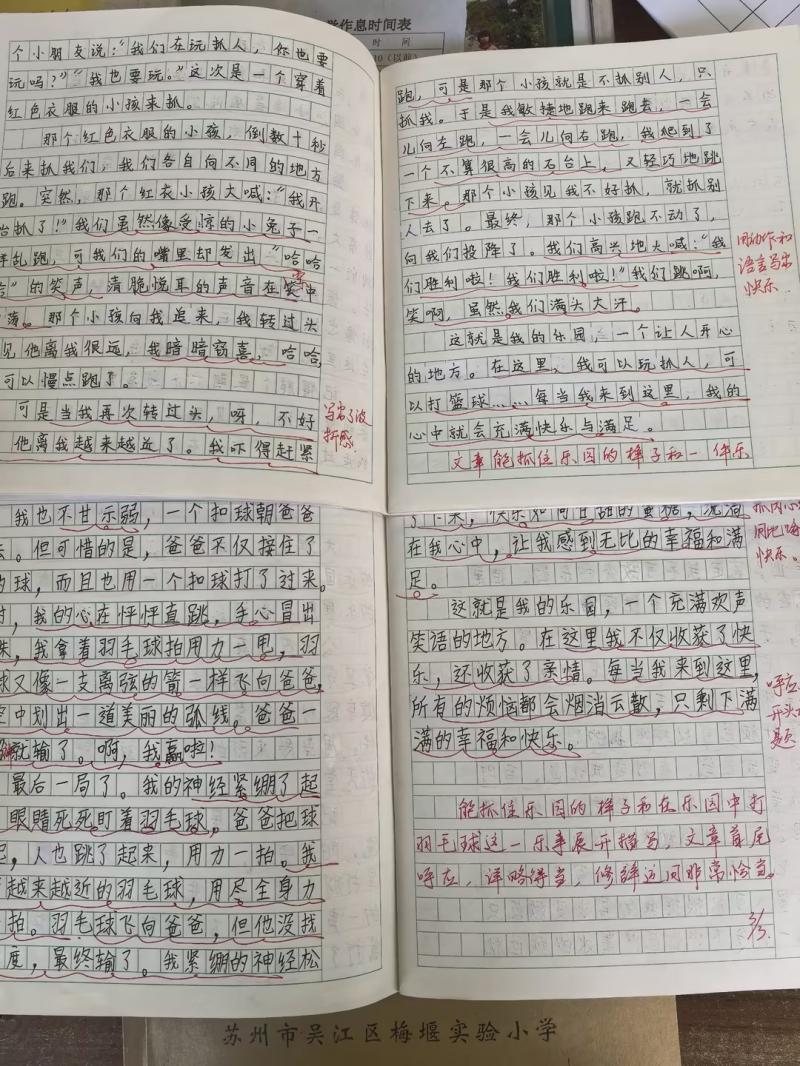 学作息时间表
时 间
个小朋友说:“我们在玩抓人,你也要
玩吗?”“我也要玩。”这次是一个穿着
红色衣服的小孩来抓。
那个红色衣服的小孩,倒数十秒
后来抓我们,我们各自向不同的地方
跑。突然,那个红衣小孩大喊:“我开
始抓了!”我们虽然像受惊的小兔子一
样乱跑,可我们的嘴里却发出“哈哈
哈”的笑声,清脆悦耳的声音在空中
荡。那个小孩向我追来,我转过头
见他离我很远,我暗暗窃喜,哈哈,
可以慢点跑了。
可是当我再次转过头,呀,不好
他离我越来越近了。我吓得赶紧
写出了波
折感
跑,可是那个小孩就是不抓别人,只
抓我。于是我敏捷地跑来跑去,一会
儿向左跑,一会儿向右跑,我爬到了
一个不算很高的石台上,又轻巧地跳
下来。那个小孩见我不好抓,就抓别
人去了。最终,那个小孩跑不动了,
向我们投降了。我们高兴地大喊:“我
们胜利啦!我们胜利啦!”我们跳啊,
笑啊,虽然我们满头大汗。
用动作和
语言写出
快乐
这就是我的乐园,一个让人开心
的地方。在这里,我可以玩抓人,可
以打篮球……每当我来到这里,我的
心中就会充满快乐与满足。
文章能抓住乐园的样子和一件乐
我也不甘示弱,一个扣球朝爸爸
去。但可惜的是,爸爸不仅接住了
的球,而且也用一个扣球打了过来。
时,我的心在怦怦直跳,手心冒出
珠,我拿着羽毛球拍用力一甩,羽
球又像一支离弦的箭一样飞向爸爸,
空中划出一道美丽的弧线。爸爸一
就输了。啊,我赢啦!
最后一局了。我的神经紧绷了起
眼睛死死盯着羽毛球,爸爸把球
起,人也跳了起来,用力一拍。我
越来越近的羽毛球,用尽全身力
拍。羽毛球飞向爸爸,但他没找
度,最终输了。我紧绷的神经松
了下来,快乐如同甘甜的蜜糖,流淌
在我心中,让我感到无比的幸福和满
足。
快乐。
这就是我的乐园,一个充满欢声
笑语的地方。在这里我不仅收获了快
乐,还收获了亲情。每当我来到这里,
所有的烦恼都会烟消云散,只剩下满
满的幸福和快乐。
呼应
开头
能抓住乐园的样子和在乐园中打
羽毛球这一乐事展开描写,文章首尾
呼应,详略得当,修辞运用非常恰当。
3/3.
苏州市吴江区梅堰实验小学